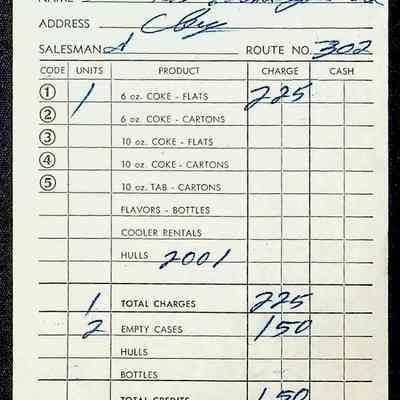 NAME
ADDRESS
SALESMAN ROUTE NO. 302
CODE UNITS PRODUCT CHARGE CASH
① 1 6 oz. COKE - FLATS 225
② 6 oz. COKE - CARTONS
③ 10 oz. COKE - FLATS
④ 10 oz. COKE - CARTONS
⑤ 10 oz. TAB - CARTONS
FLAVORS - BOTTLES
COOLER RENTALS
HULLS 2001
1 TOTAL CHARGES 225
2 EMPTY CASES 150
HULLS
BOTTLES
TOTAL CREDITS 150